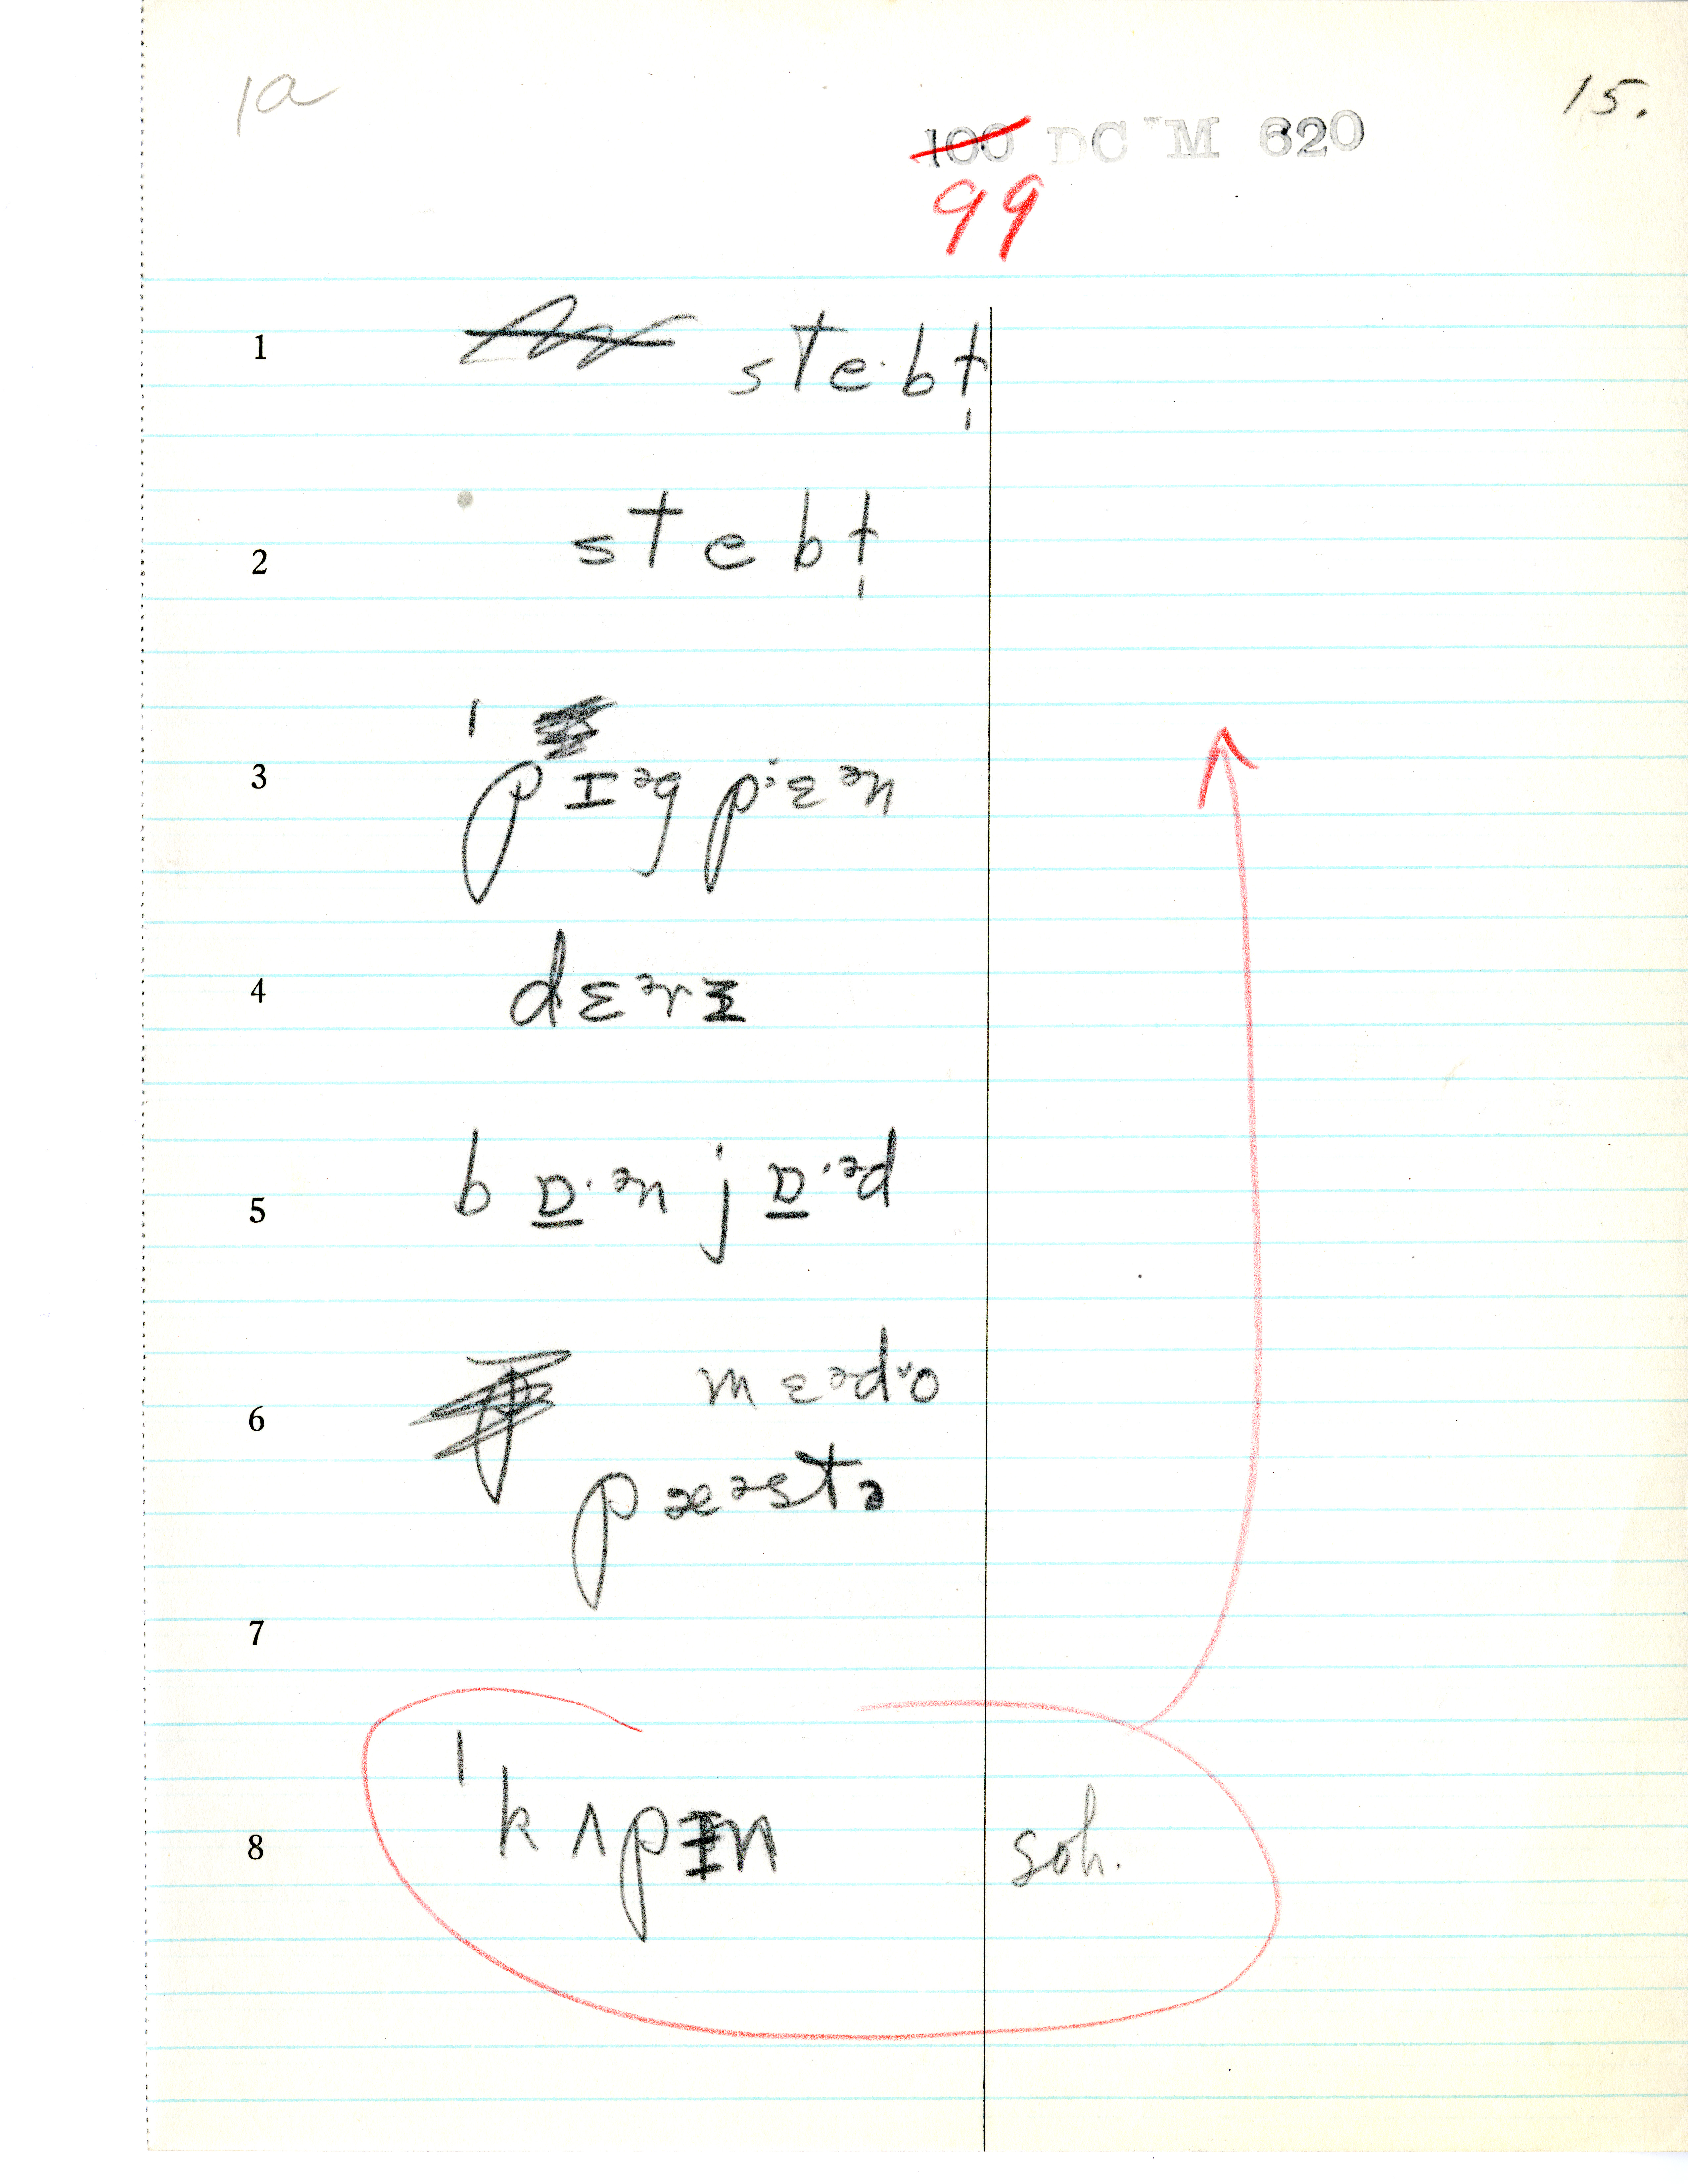 1a
15.
100 DC M 620
99
1 ste·bt̩
2 stebt̩
3 ˈpɪᵊg pɛ·ᵊn
4 dɛᵊrɪ
5 b ɒ̲·ᵊn j ɒ̲·ᵊd
6 mɛᵊdo
pæᵊstə
7
8 ˈkʌpɪn soh.